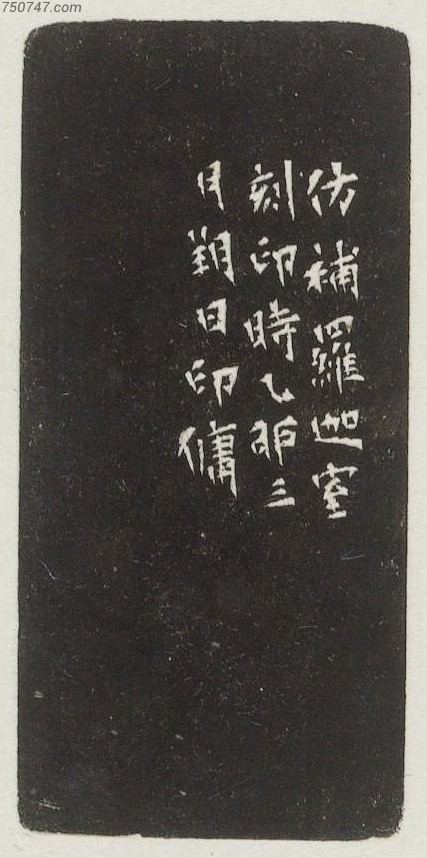 750747.com
仿補羅迦室
刻印時乙卯三
月朔日印傭